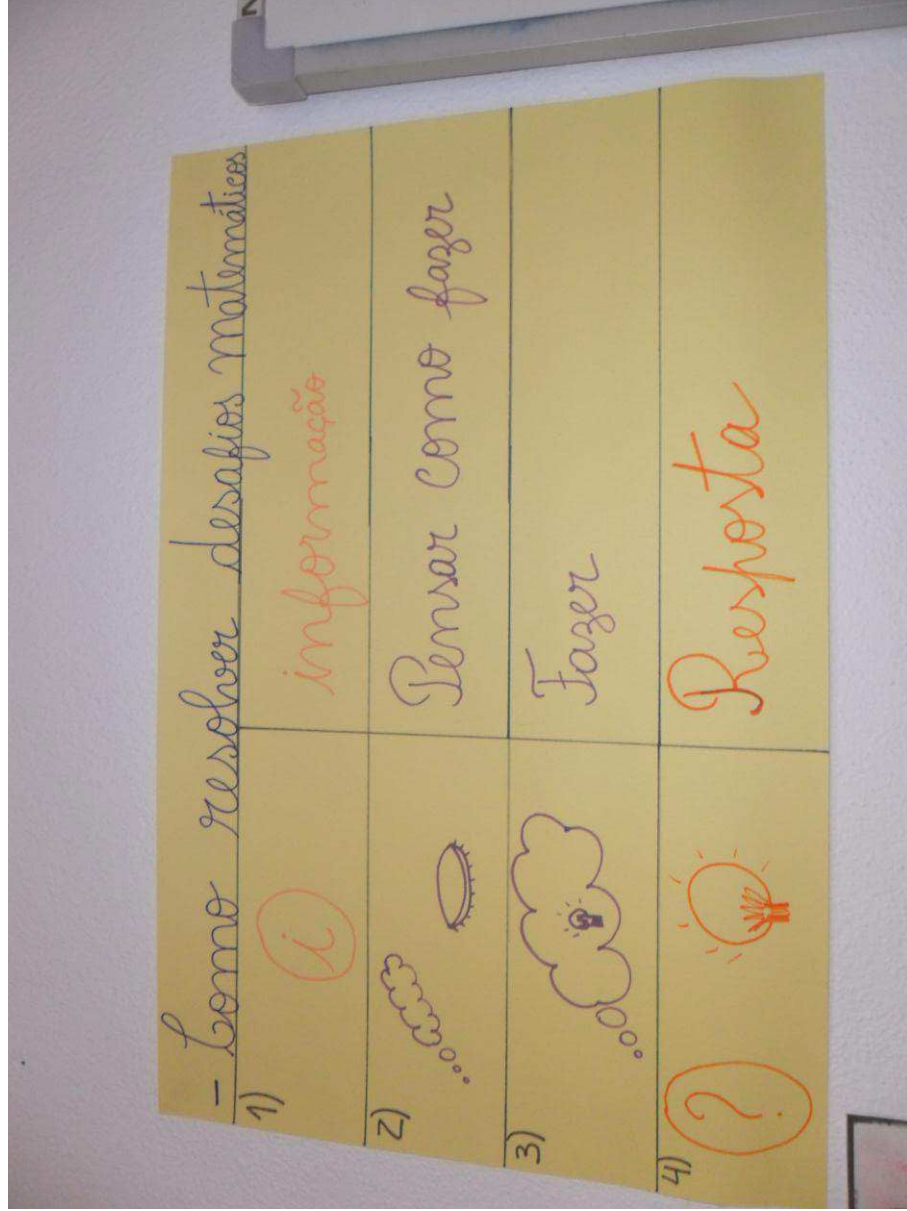 - Como resolver desafios matemáticos
1) i informação
2) Pensar como fazer
3) Fazer
4) ? Resposta